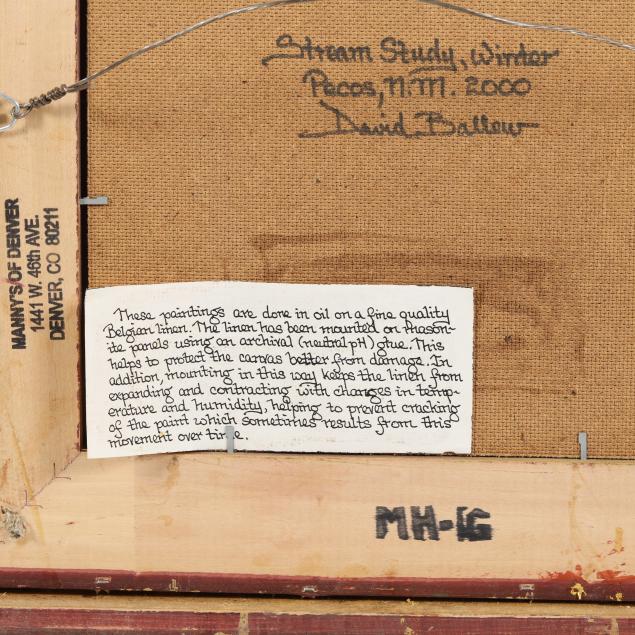 Stream Study, Winter
Pecos, N.M. 2000
David Ballew
MANNY'S OF DENVER
1441 W. 46th AVE.
DENVER, CO 80211
These paintings are done in oil on a fine quality
Belgian linen. The linen has been mounted on Mason-
ite panels using an archival (neutral pH) glue. This
helps to protect the canvas better from damage. In
addition, mounting in this way keeps the linen from
expanding and contracting with changes in temp-
erature and humidity, helping to prevent cracking
of the paint which sometimes results from this
movement over time.
MH-16